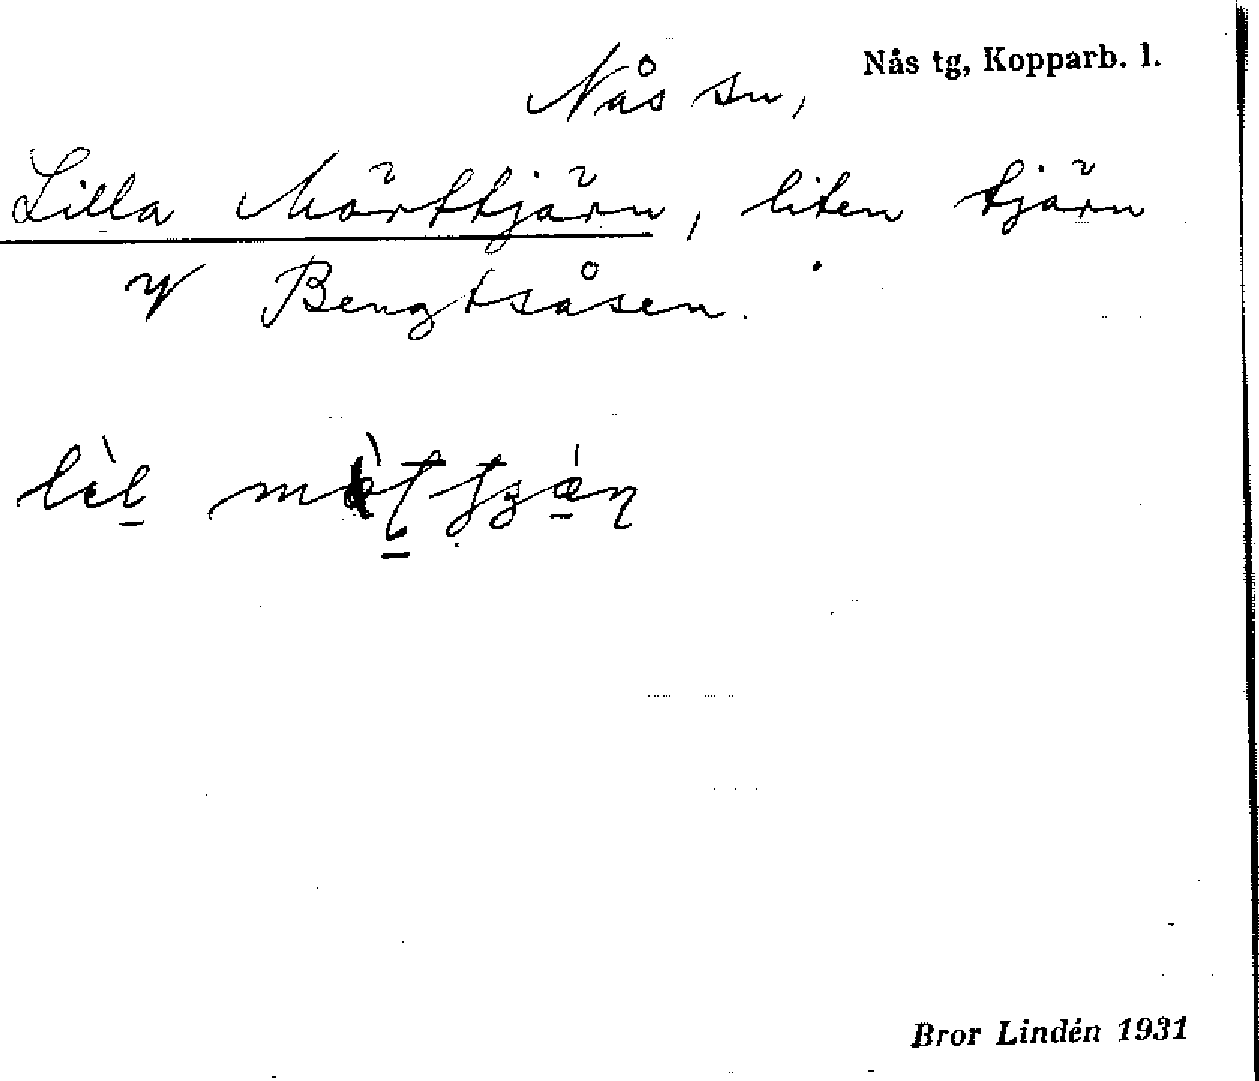 Nås tg, Kopparb. l.
Nås sn,
Lilla Mörttjärn, liten tjärn
V Bengtsåsen.
Bror Lindén 1931